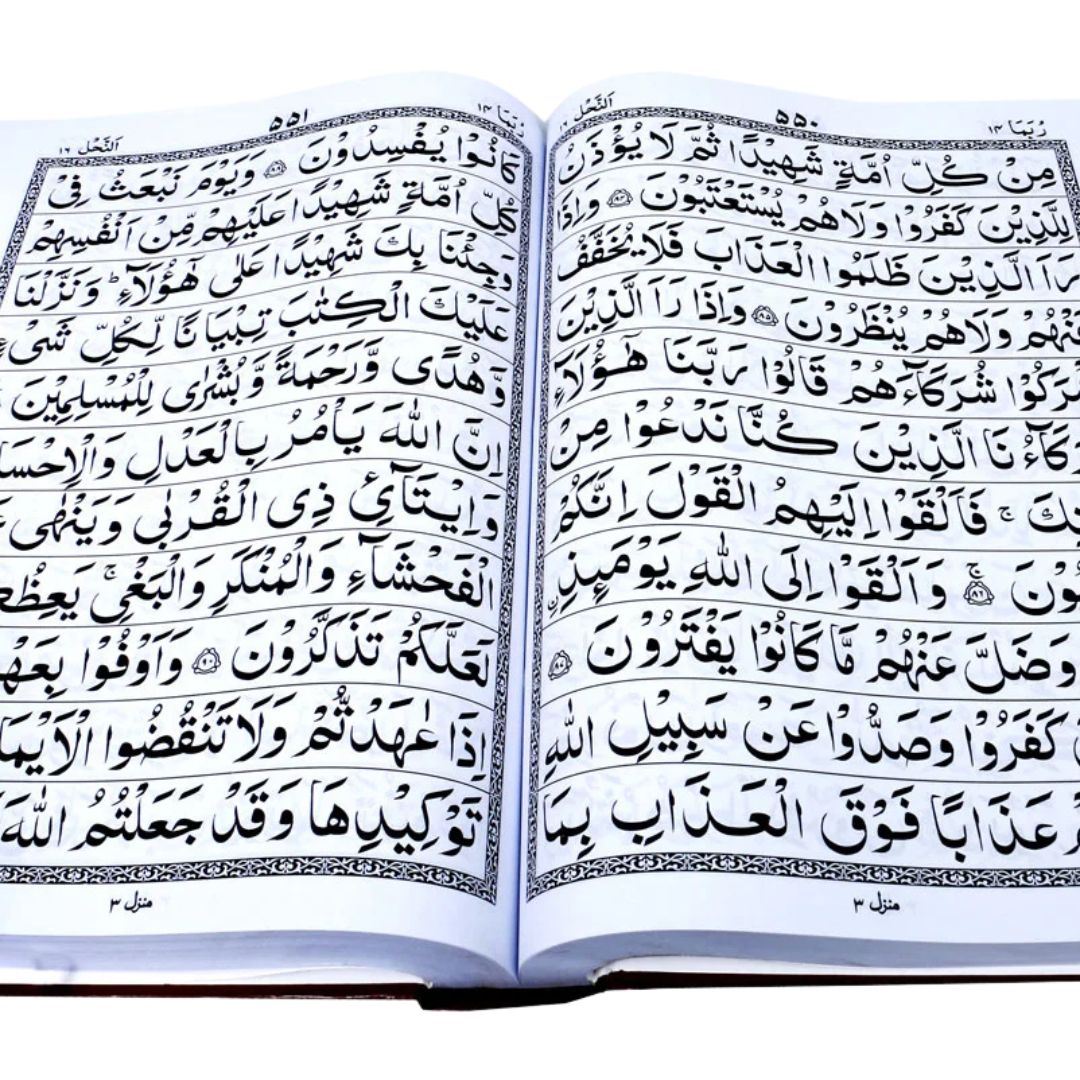 رُبَمَا ۱۴
۵۵۰
اَلنَّحْل ۱۶
مِنْ كُلِّ اُمَّةٍ شَهِيْدًا ثُمَّ لَا يُؤْذَنُ
لِلَّذِيْنَ كَفَرُوْا وَلَا هُمْ يُسْتَعْتَبُوْنَ ۝۸۴ وَاِذَا
رَاَ الَّذِيْنَ ظَلَمُوا الْعَذَابَ فَلَا يُخَفَّفُ
عَنْهُمْ وَلَا هُمْ يُنْظَرُوْنَ ۝۸۵ وَاِذَا رَاَ الَّذِيْنَ
اَشْرَكُوْا شُرَكَآءَهُمْ قَالُوْا رَبَّنَا هٰٓؤُلَآءِ
شُرَكَآؤُنَا الَّذِيْنَ كُنَّا نَدْعُوْا مِنْ
دُوْنِكَ ۚ فَاَلْقَوْا اِلَيْهِمُ الْقَوْلَ اِنَّكُمْ
وْنَ ۝۸۶ ۚ وَاَلْقَوْا اِلَى اللّٰهِ يَوْمَئِذِ
وَضَلَّ عَنْهُمْ مَّا كَانُوْا يَفْتَرُوْنَ ۝۸۷
كَفَرُوْا وَصَدُّوْا عَنْ سَبِيْلِ اللّٰهِ
مْ عَذَابًا فَوْقَ الْعَذَابِ بِمَا
منزل ۳
رُبَمَا ۱۴
۵۵۱
اَلنَّحْل ۱۶
كَانُوْا يُفْسِدُوْنَ ۝۸۸ وَيَوْمَ نَبْعَثُ فِيْ
كُلِّ اُمَّةٍ شَهِيْدًا عَلَيْهِمْ مِّنْ اَنْفُسِهِمْ
وَجِئْنَا بِكَ شَهِيْدًا عَلٰى هٰٓؤُلَآءِ ؕ وَنَزَّلْنَا
عَلَيْكَ الْكِتٰبَ تِبْيَانًا لِّكُلِّ شَيْءٍ
وَّهُدًى وَّرَحْمَةً وَّبُشْرٰى لِلْمُسْلِمِيْنَ
اِنَّ اللّٰهَ يَاْمُرُ بِالْعَدْلِ وَالْاِحْسَا
وَاِيْتَآئِ ذِي الْقُرْبٰى وَيَنْهٰى
الْفَحْشَآءِ وَالْمُنْكَرِ وَالْبَغْيِ ۚ يَعِظُ
لَعَلَّكُمْ تَذَكَّرُوْنَ ۝۹۰ وَاَوْفُوْا بِعَهْ
اِذَا عٰهَدْتُّمْ وَلَا تَنْقُضُوا الْاَيْمَا
تَوْكِيْدِهَا وَقَدْ جَعَلْتُمُ اللّٰهَ
منزل ۳